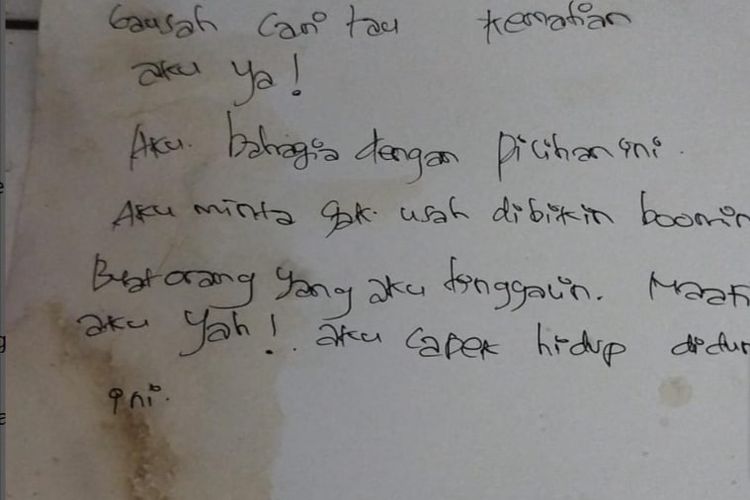 Gausah Cari tau kematian
aku ya!
Aku. bahagia dengan pilihan ini.
Aku minta gak. usah dibikin boomin
Buat orang yang aku tinggalin. Maaf
aku yah! aku capek hidup didun
ini.